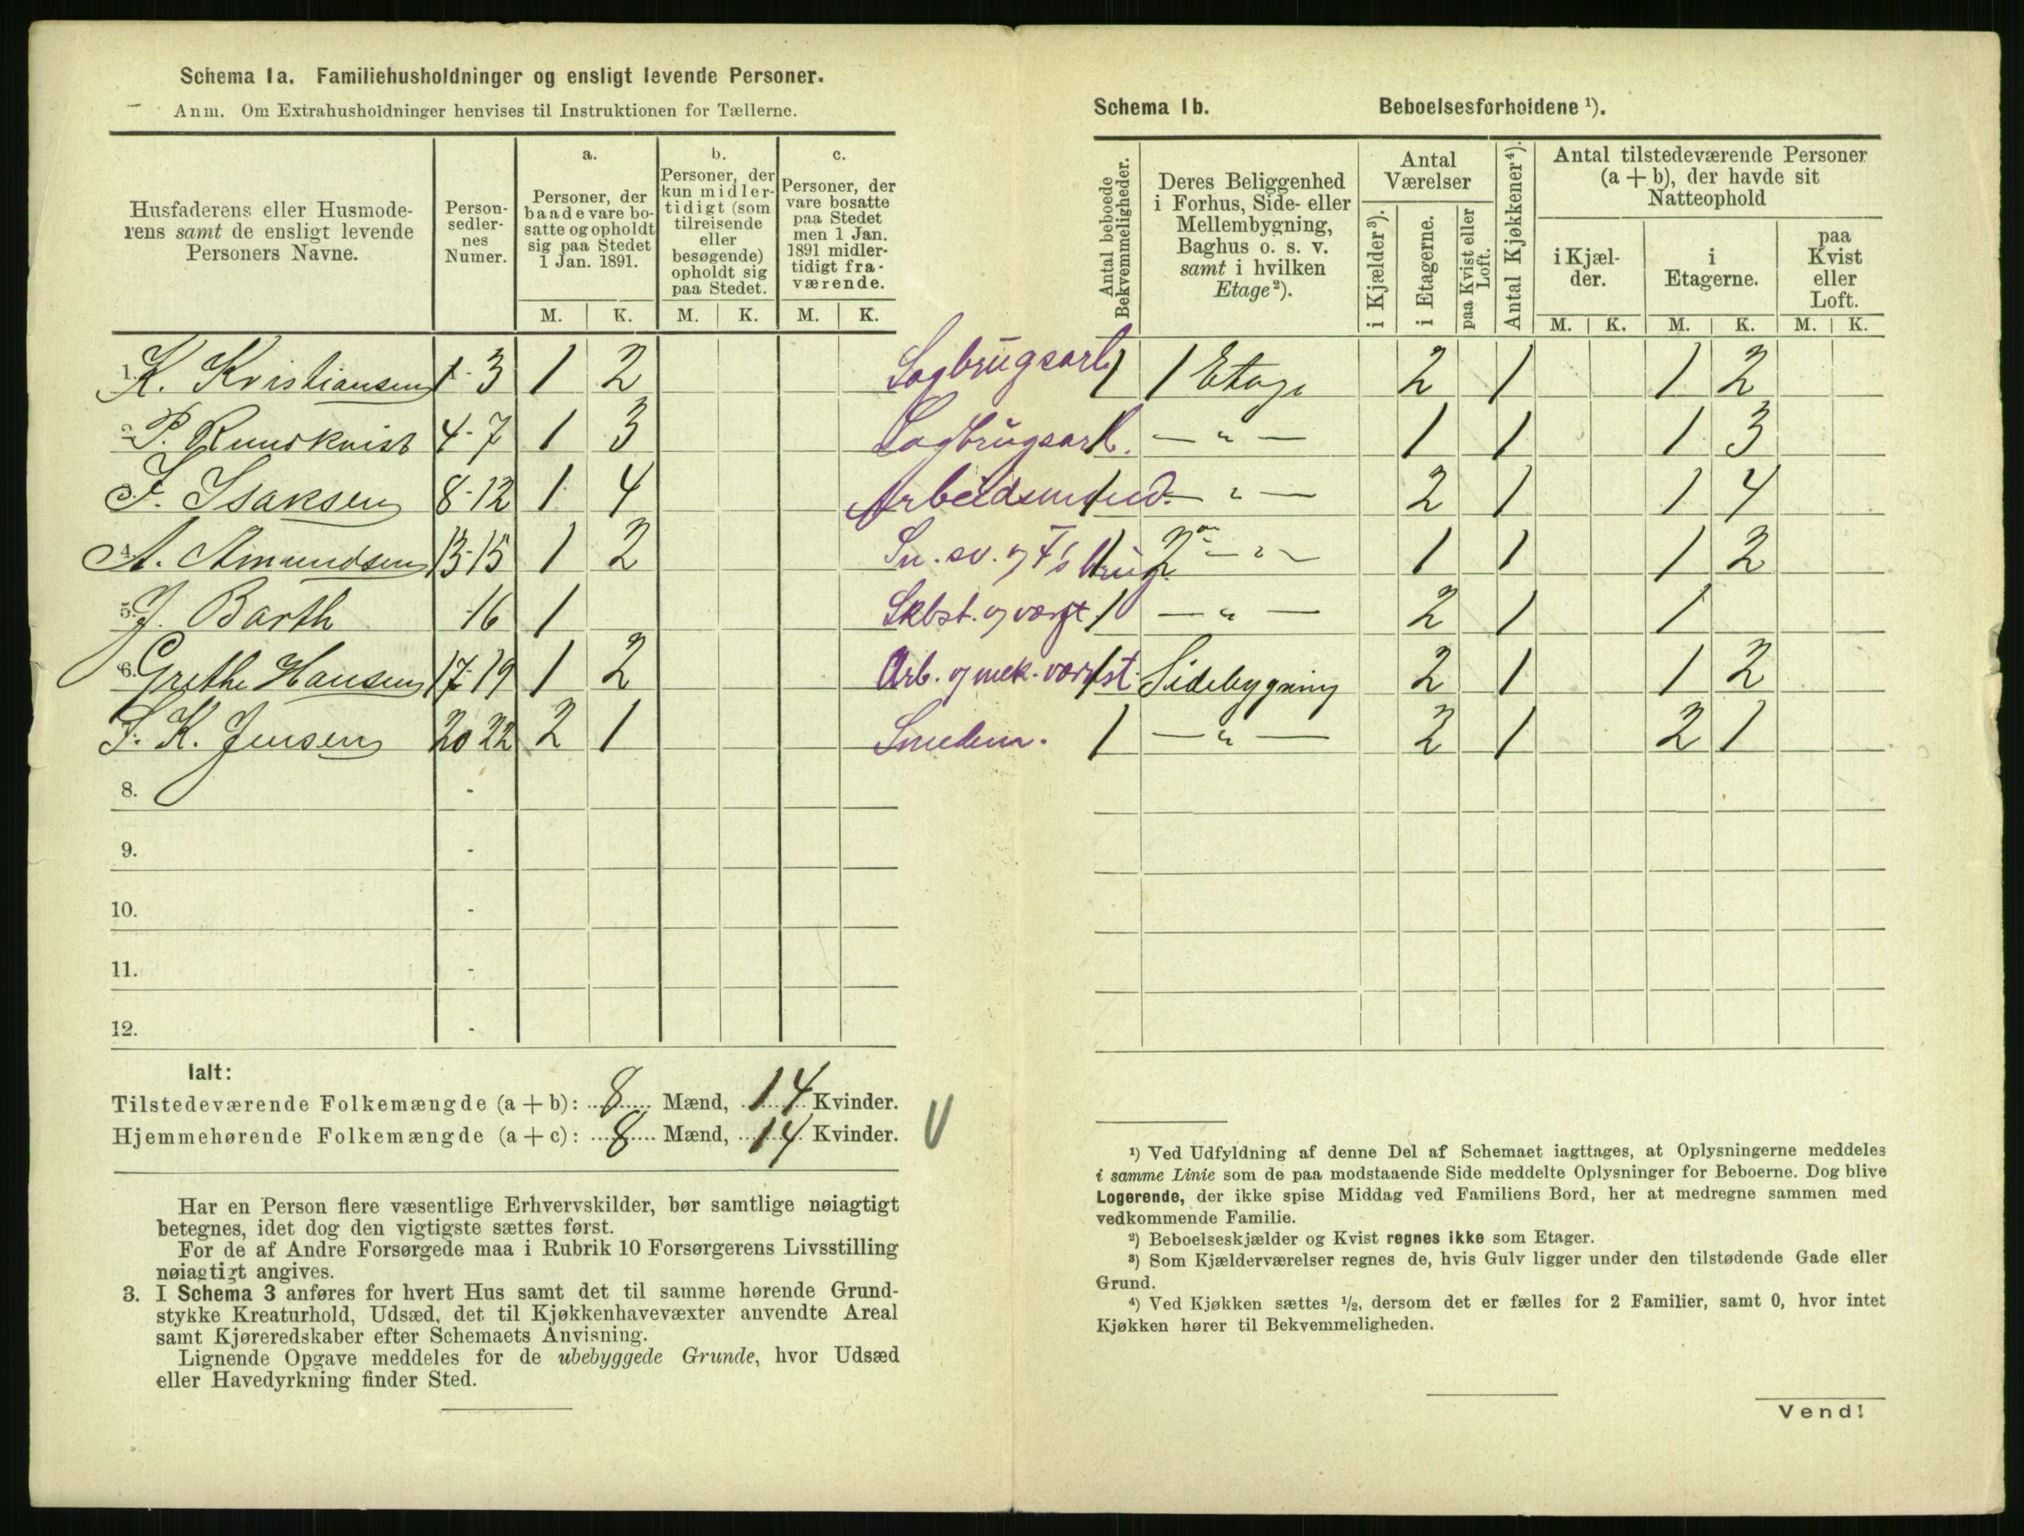 Schema 1a. Familiehusholdninger og ensligt levende Personer.
Anm. Om Extrahusholdninger henvises til Instruktionen for Tællerne.
Husfaderens eller Husmoderens samt de ensligt levende Personers Navne.
Personsedlernes Numer.
a. Personer, der baade vare bosatte og opholdt sig paa Stedet 1 Jan. 1891.
b. Personer, der kun midlertidigt (som tilreisende eller besøgende) opholdt sig paa Stedet.
c. Personer, der vare bosatte paa Stedet men 1 Jan. 1891 midlertidigt fraværende.
M. K. M. K. M. K.
1. K. Kristiansen 1-3 1 2 Sagbrugsarb.
2. P. Rundkvist 4-7 1 3 Sagbrugsarb.
3. I. Isaksen 8-12 1 4 Arbeidsmand.
4. A. Amundsen 13-15 1 2 Sn. sv.
5. J. Barth -16 1 Skbst. og værft
6. Grethe Hansen 17-19 1 2 Arb. og mek. værkst.
7. S. K. Jensen 20-22 2 1 Smedem.
8. -
9. -
10. -
11. -
12. -
Ialt:
Tilstedeværende Folkemængde (a + b): 8 Mænd, 14 Kvinder.
Hjemmehørende Folkemængde (a + c): 8 Mænd, 14 Kvinder.
Har en Person flere væsentlige Erhvervskilder, bør samtlige nøiagtigt
betegnes, idet dog den vigtigste sættes først.
For de af Andre Forsørgede maa i Rubrik 10 Forsørgerens Livsstilling
nøiagtigt angives.
3. I Schema 3 anføres for hvert Hus samt det til samme hørende Grund-
stykke Kreaturhold, Udsæd, det til Kjøkkenhavevæxter anvendte Areal
samt Kjøreredskaber efter Schemaets Anvisning.
Lignende Opgave meddeles for de ubebyggede Grunde, hvor Udsæd
eller Havedyrkning finder Sted.
Schema 1b. Beboelsesforholdene ¹).
Antal beboede Bekvemmeligheder.
Deres Beliggenhed i Forhus, Side- eller Mellembygning, Baghus o. s. v. samt i hvilken Etage²).
Antal Værelser
i Kjælder³).
i Etagerne.
paa Kvist eller Loft.
Antal Kjøkkener⁴).
Antal tilstedeværende Personer (a + b), der havde sit Natteophold
i Kjælder.
i Etagerne.
paa Kvist eller Loft.
M. K. M. K. M. K.
1 1 Etage 2 1 1 2
1 — „ — 1 1 1 3
1 — „ — 2 1 1 4
1 2den — „ — 1 1 1 2
1 — „ — 2 1 1
1 Sidebygning 2 1 1 2
1 — „ — 2 1 2 1
¹) Ved Udfyldning af denne Del af Schemaet iagttages, at Oplysningerne meddeles
i samme Linie som de paa modstaaende Side meddelte Oplysninger for Beboerne. Dog blive
Logerende, der ikke spise Middag ved Familiens Bord, her at medregne sammen med
vedkommende Familie.
²) Beboelseskjælder og Kvist regnes ikke som Etager.
³) Som Kjælderværelser regnes de, hvis Gulv ligger under den tilstødende Gade eller
Grund.
⁴) Ved Kjøkken sættes ½, dersom det er fælles for 2 Familier, samt 0, hvor intet
Kjøkken hører til Bekvemmeligheden.
Vend!